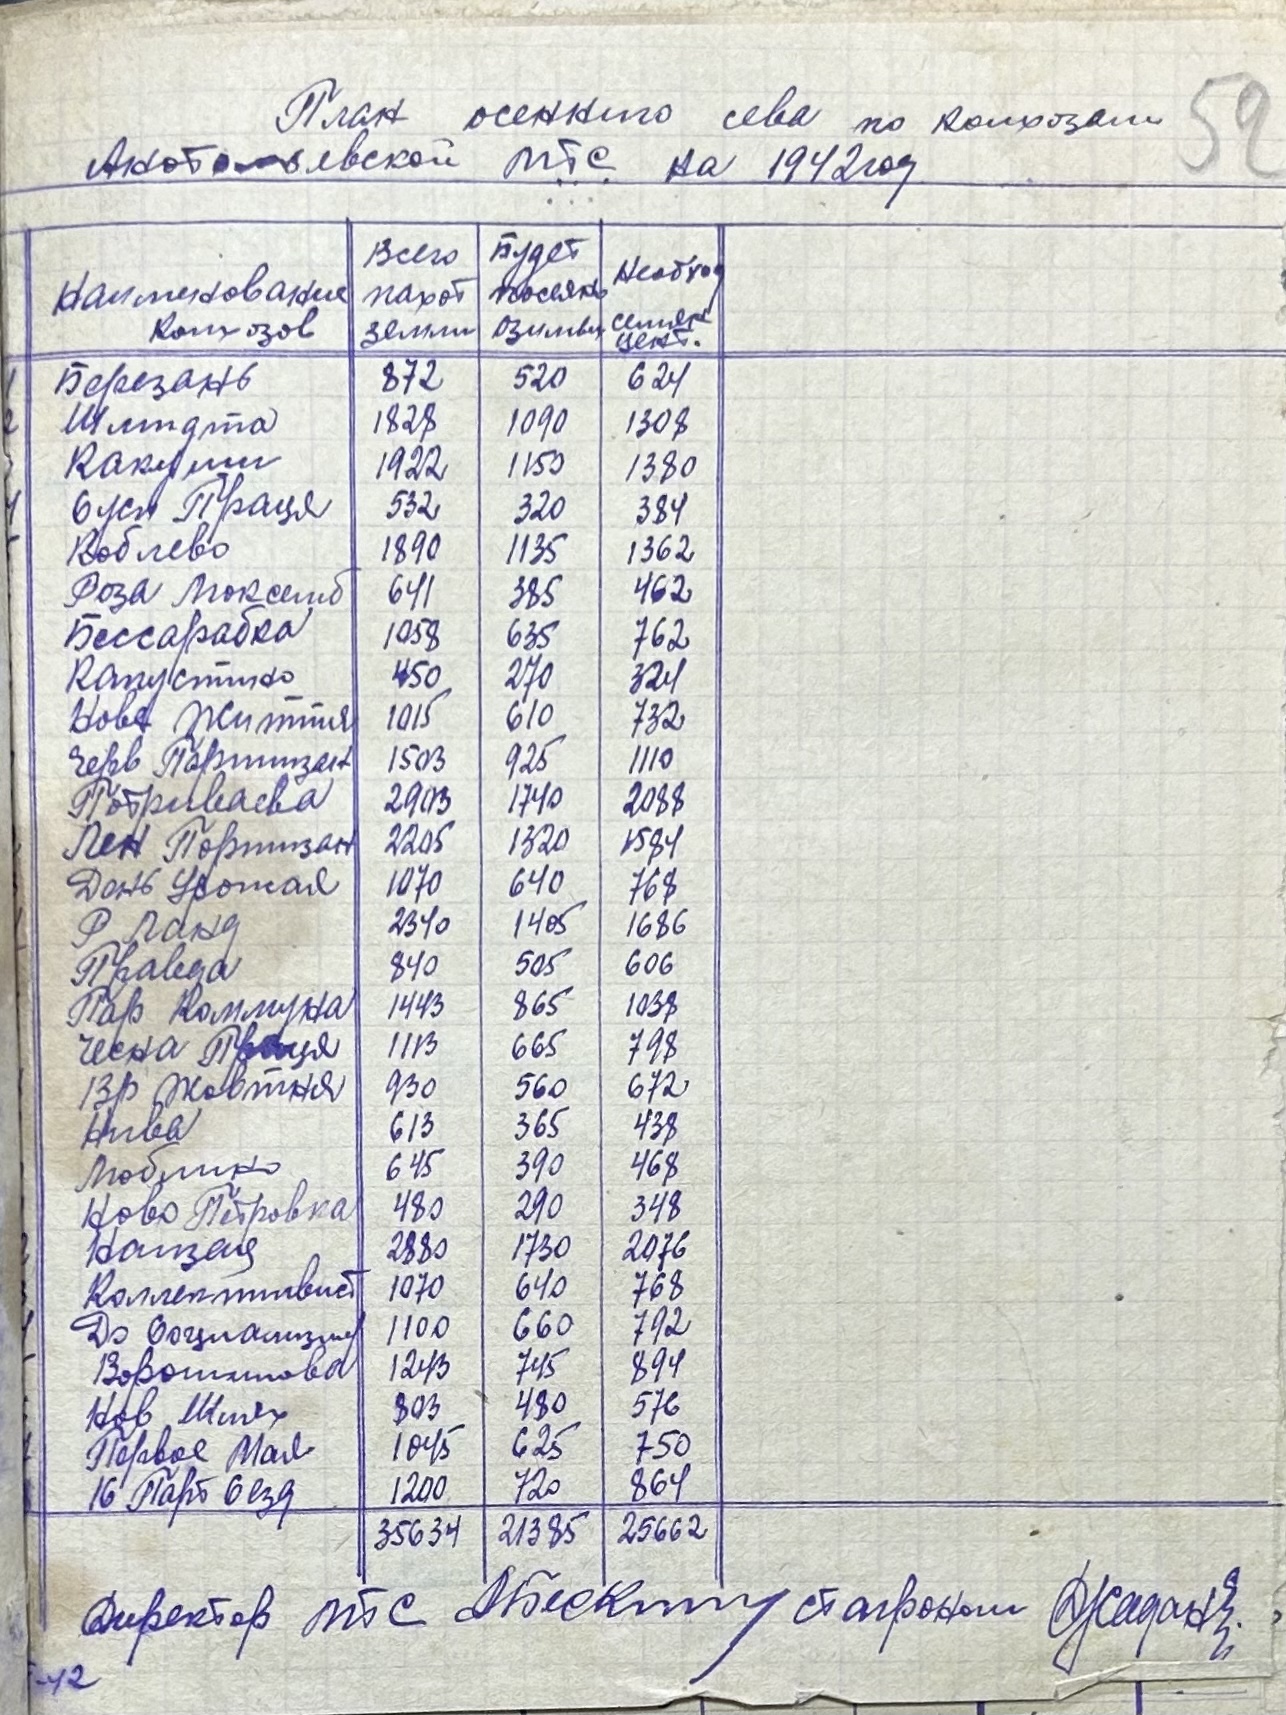 59
План осеннего сева по колхозам
Анатольевской МТС на 1942 год
Наименование колхозов | Всего пахот земли | Будет посеян озимых | Необход семян цент.
1 Березань 872 520 624
2 Шмидта 1828 1090 1308
3 1922 1150 1380
4 Сусп Праця 532 320 384
5 Коблево 1890 1135 1362
Роза Люксемб 641 385 462
Бессарабка 1058 635 762
Капустино 450 270 324
Нове Життя 1015 610 732
Черв Партизан 1503 925 1110
Потриваева 2903 1740 2088
Лен Партизан 2205 1320 1584
День Урожая 1070 640 768
Р Ланд 2340 1405 1686
Правда 840 505 606
Пар Коммуна 1443 865 1038
Чесна Праця 1113 665 798
13 р Жовтня 930 560 672
Нива 613 365 438
Люблино 645 390 468
Ново Петровка 480 290 348
2880 1730 2076
Коллективист 1070 640 768
До Социализму 1100 660 792
Ворошилова 1243 745 894
Нов Шлях 803 480 576
Первое Мая 1045 625 750
16 Парт Сезд 1200 720 864
35634 21385 25662
Директор МТС ст агроном
-42